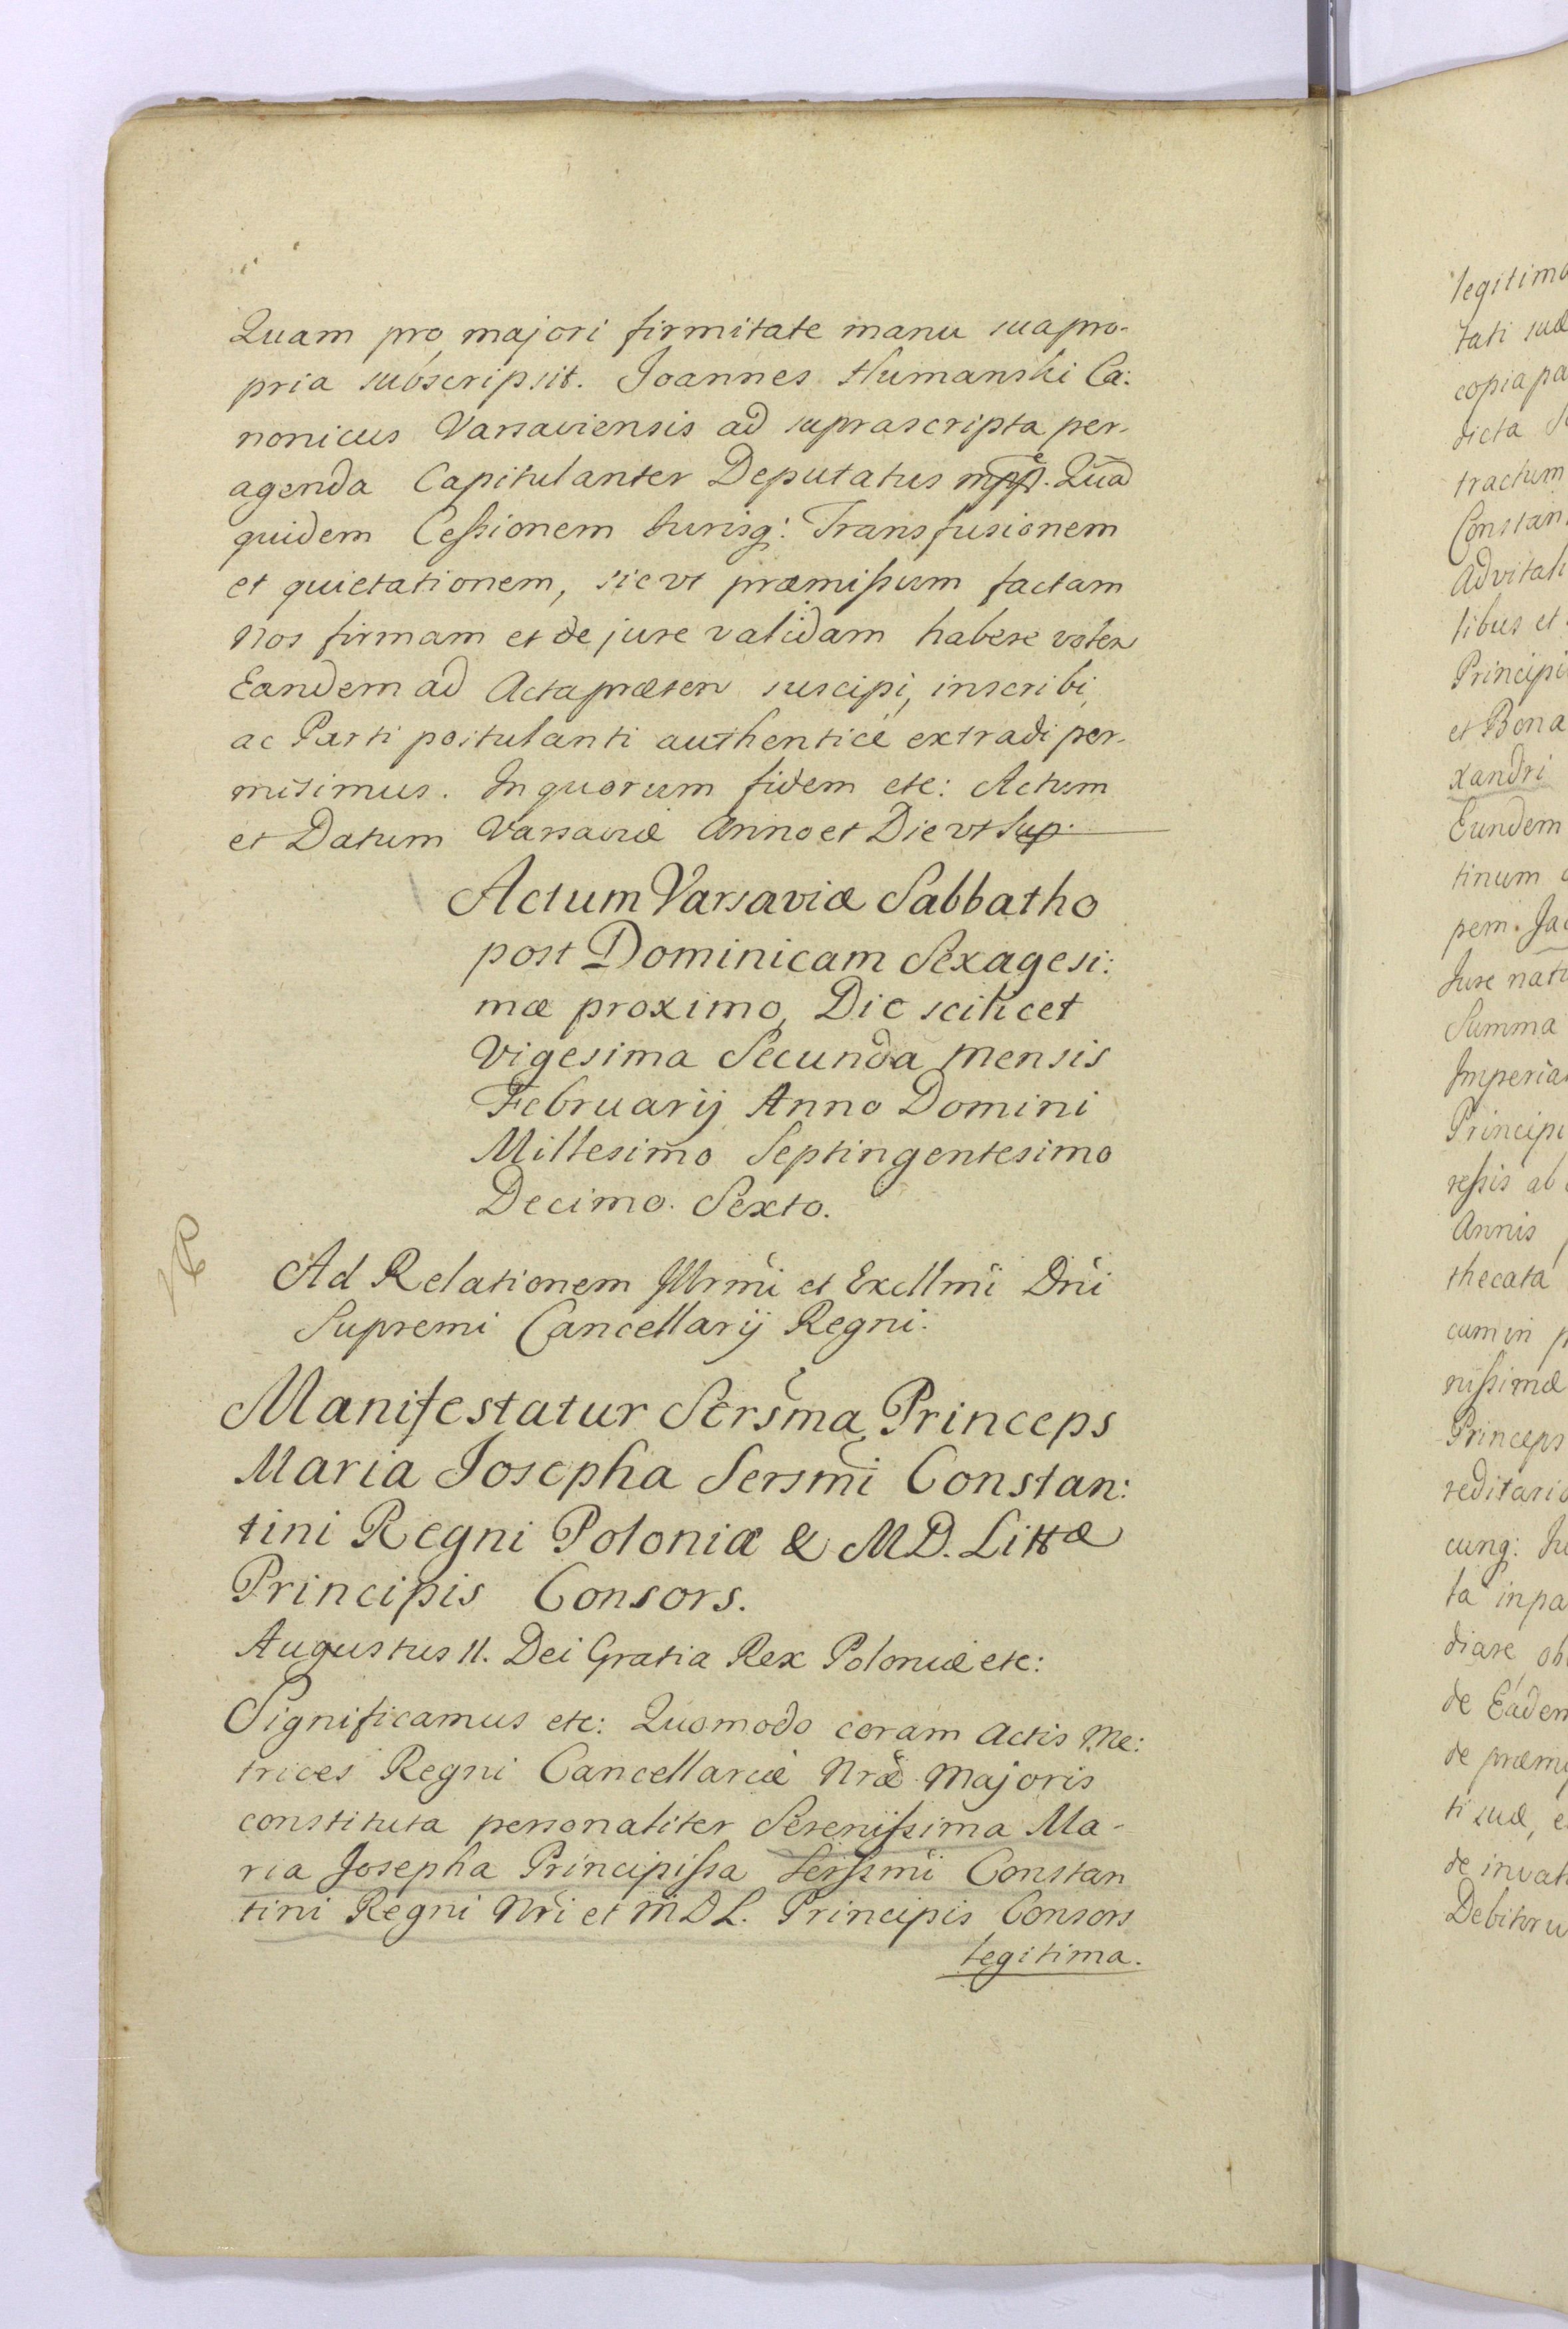 Quam pro majori firmitate manu sua pro-
pria subscripsit. Joannes Humanski Ca:
nonicus Varsaviensis ad suprascripta per-
agenda Capitulanter Deputatus mpp. Quā
quidem Ceſsionem Jurisq: Transfusionem
et quietationem, sicut præmiſsum factam
Nos firmam et de jure validam habere volen
Eandem ad Acta præsen suscipi, inscribi,
ac Parti postulanti authenticè extradi per-
misimus. In quorum fidem etc: Actum
et Datum Varsaviæ Anno et Die vt Sup.
Actum Varsaviæ Sabbatho
post Dominicam Sexagesi:
mæ proximo, Die scilicet
Vigesima Secunda Mensis
Februarij Anno Domini
Millesimo Septingentesimo
Decimo. Sexto.
Ad Relationem Jllrmi et Excllmi Dni
Supremi Cancellarij Regni.
Manifestatur Sersma Princeps
Maria Josepha Sersmi Constan:
tini Regni Poloniæ & M D. Littæ
Principis Consors.
Augustus II. Dei Gratia Rex Poloniæ etc:
Significamus etc: Quomodo coram Actis Me:
trices Regni Cancellariæ Nræ Majoris
constituta personaliter Sereniſsima Ma-
ria Josepha Principiſsa Serſsmi Constan
tini Regni Nri et M D L. Principis Consors
legitima.
legitima
tati suæ
copia pa
dicta
tractum
Constan
Advitali
libus et
Principi
et Bona
xandri
Eundem
tinum
pem. Jac
Jure natu
Summa
Imperia
Principi
reſsis ab
Annis
thecata
cum in p
niſsimæ
Princeps
reditario
cunq: Ju
ta in pa
diare, ob
de Eadem
de præmi
ti suæ, e
de invah
Debitoru